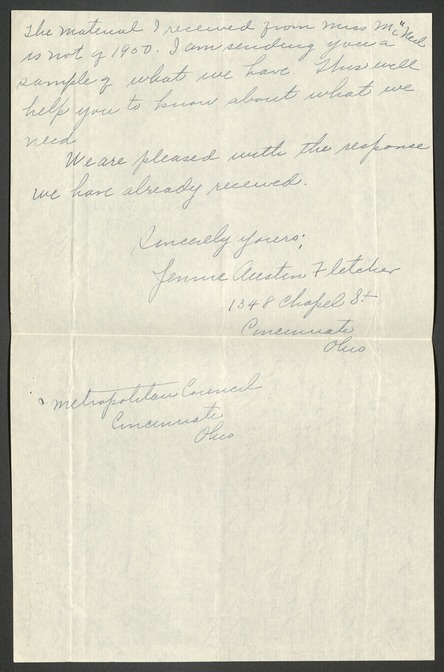 The material I received from Miss Mc"Neil
is not of 1900. I am sending you a
sample of what we have. This will
help you to know about what we
need.
We are pleased with the response
we have already received.
Sincerely yours,
Jennie Austin Fletcher
1348 Chapel St
Cincinnati
Ohio
Metropolitan Council
Cincinnati
Ohio